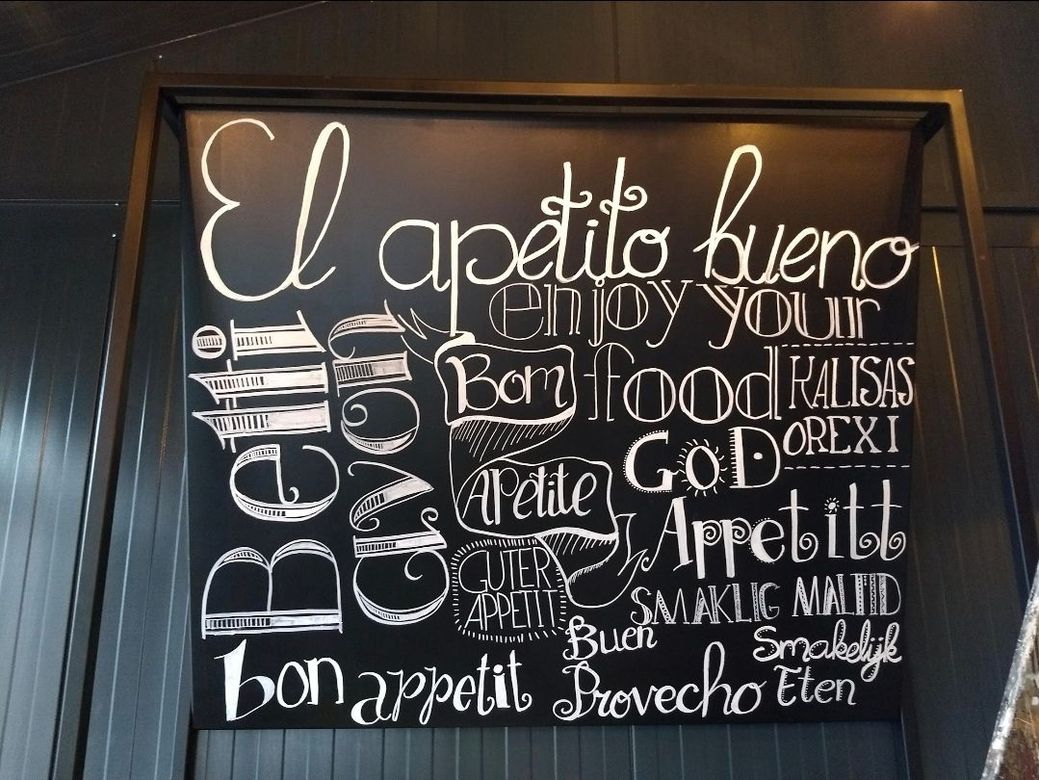 El apetito bueno
enjoy your
food
Betti
Gıvon
Bom
Apetite
KALISAS
OREXI
GOD
Appetitt
GUTER
APPETIT
SMAKLIG MALTID
Buen
Provecho
Smakelijk
Eten
bon appetit